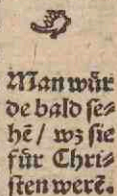 Man wür
de bald se⸗
hẽ / wz sie
für Chri⸗
sten werẽ.